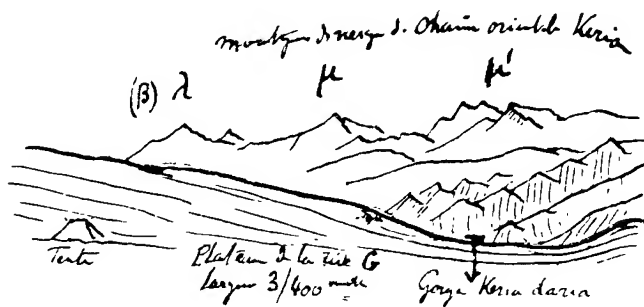 montagnes de neige d. chaîne orientale Keria
(β) λ μ μ'
Tente
Plateau d la rive G
largeur 3/400 mètres
Gorge Keria daria